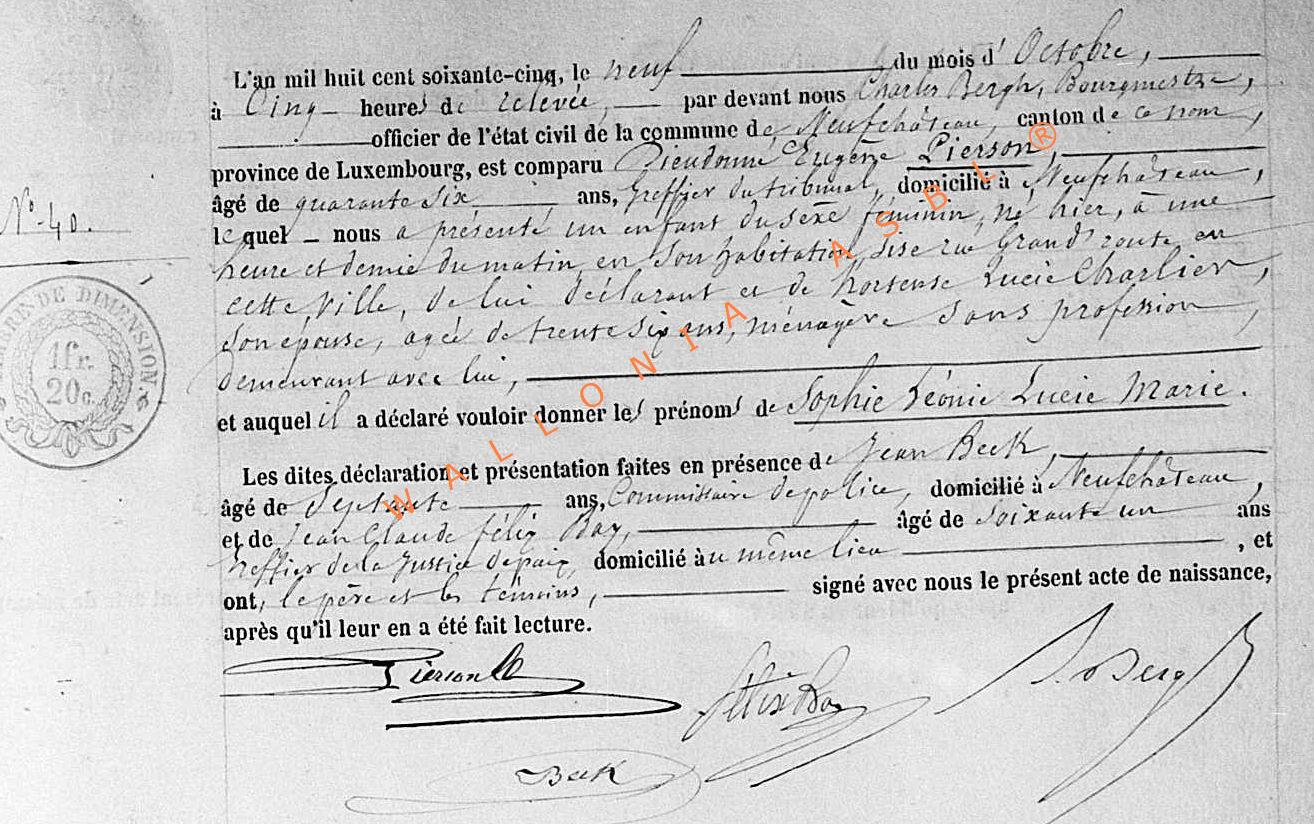 L'an mil huit cent soixante-cinq, le neuf du mois d'Octobre,
à Cinq heures de relevée, par devant nous Charles Bergh, Bourgmestre,
officier de l'état civil de la commune de Neufchâteau, canton de ce nom,
province de Luxembourg, est comparu Dieudonné Eugène Pierson,
âgé de quarante six ans, Greffier du tribunal, domicilié à Neufchâteau,
lequel nous a présenté un enfant du sexe féminin, né hier, à une
N° 40.
heure et demie du matin, en son habitation, sise rue Grand'route, en
cette ville, de lui déclarant et de hortense Lucie Charlier,
son épouse, agée de trente six ans, ménagère sans profession,
demeurant avec lui,
et auquel il a déclaré vouloir donner les prénoms de Sophie Léonie Lucie Marie.
TIMBRE DE DIMENSION
1fr.
20c.
Les dites déclaration et présentation faites en présence de Jean Beck,
âgé de Septante ans, Commissaire de police, domicilié à Neufchâteau,
et de Jean Claude félix Bay, âgé de soixante un ans
Greffier de la Justice de paix, domicilié au même lieu, et
ont, le père et les témoins, signé avec nous le présent acte de naissance,
après qu'il leur en a été fait lecture.
Pierson
félix Bay
Bergh
Beck
WALLONIA ASBL ®